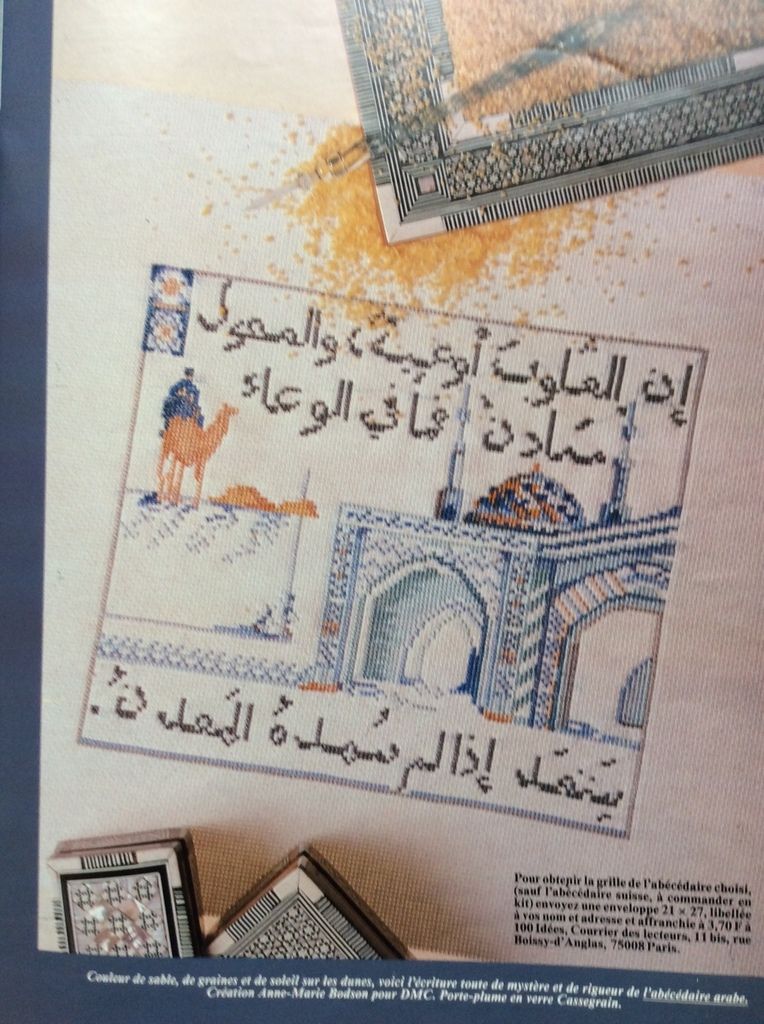 إن القلوبَ أوعيةٌ، والعقولَ
معادن، فما في الوعاء
سَينفَد إذا لم تُمدهُ المَعادنُ.
Pour obtenir la grille de l'abécédaire choisi,
(sauf l'abécédaire suisse, à commander en
kit) envoyez une enveloppe 21 × 27, libellée
à vos nom et adresse et affranchie à 3,70 F à
100 Idées, Courrier des lecteurs, 11 bis, rue
Boissy-d'Anglas, 75008 Paris.
Couleur de sable, de graines et de soleil sur les dunes, voici l'écriture toute de mystère et de rigueur de l'abécédaire arabe.
Création Anne-Marie Bodson pour DMC. Porte-plume en verre Cassegrain.